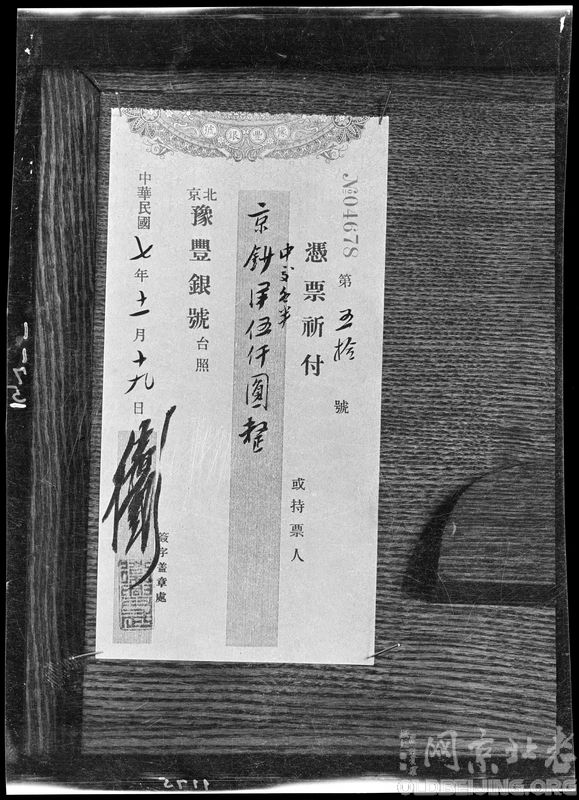 豫豐銀號
No 04678
第五拾號
憑票祈付
或持票人
中交各半
京鈔洋伍仟圓整
北京
豫豐銀號台照
中華民國七年十一月十九日
簽字蓋章處
1175
老北京网
OLDBEIJING.ORG